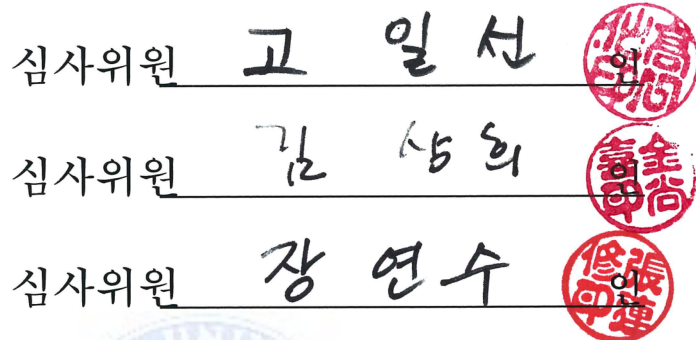 심사위원 고 일 선 인
심사위원 김 상 희 인
심사위원 장 연 수 인